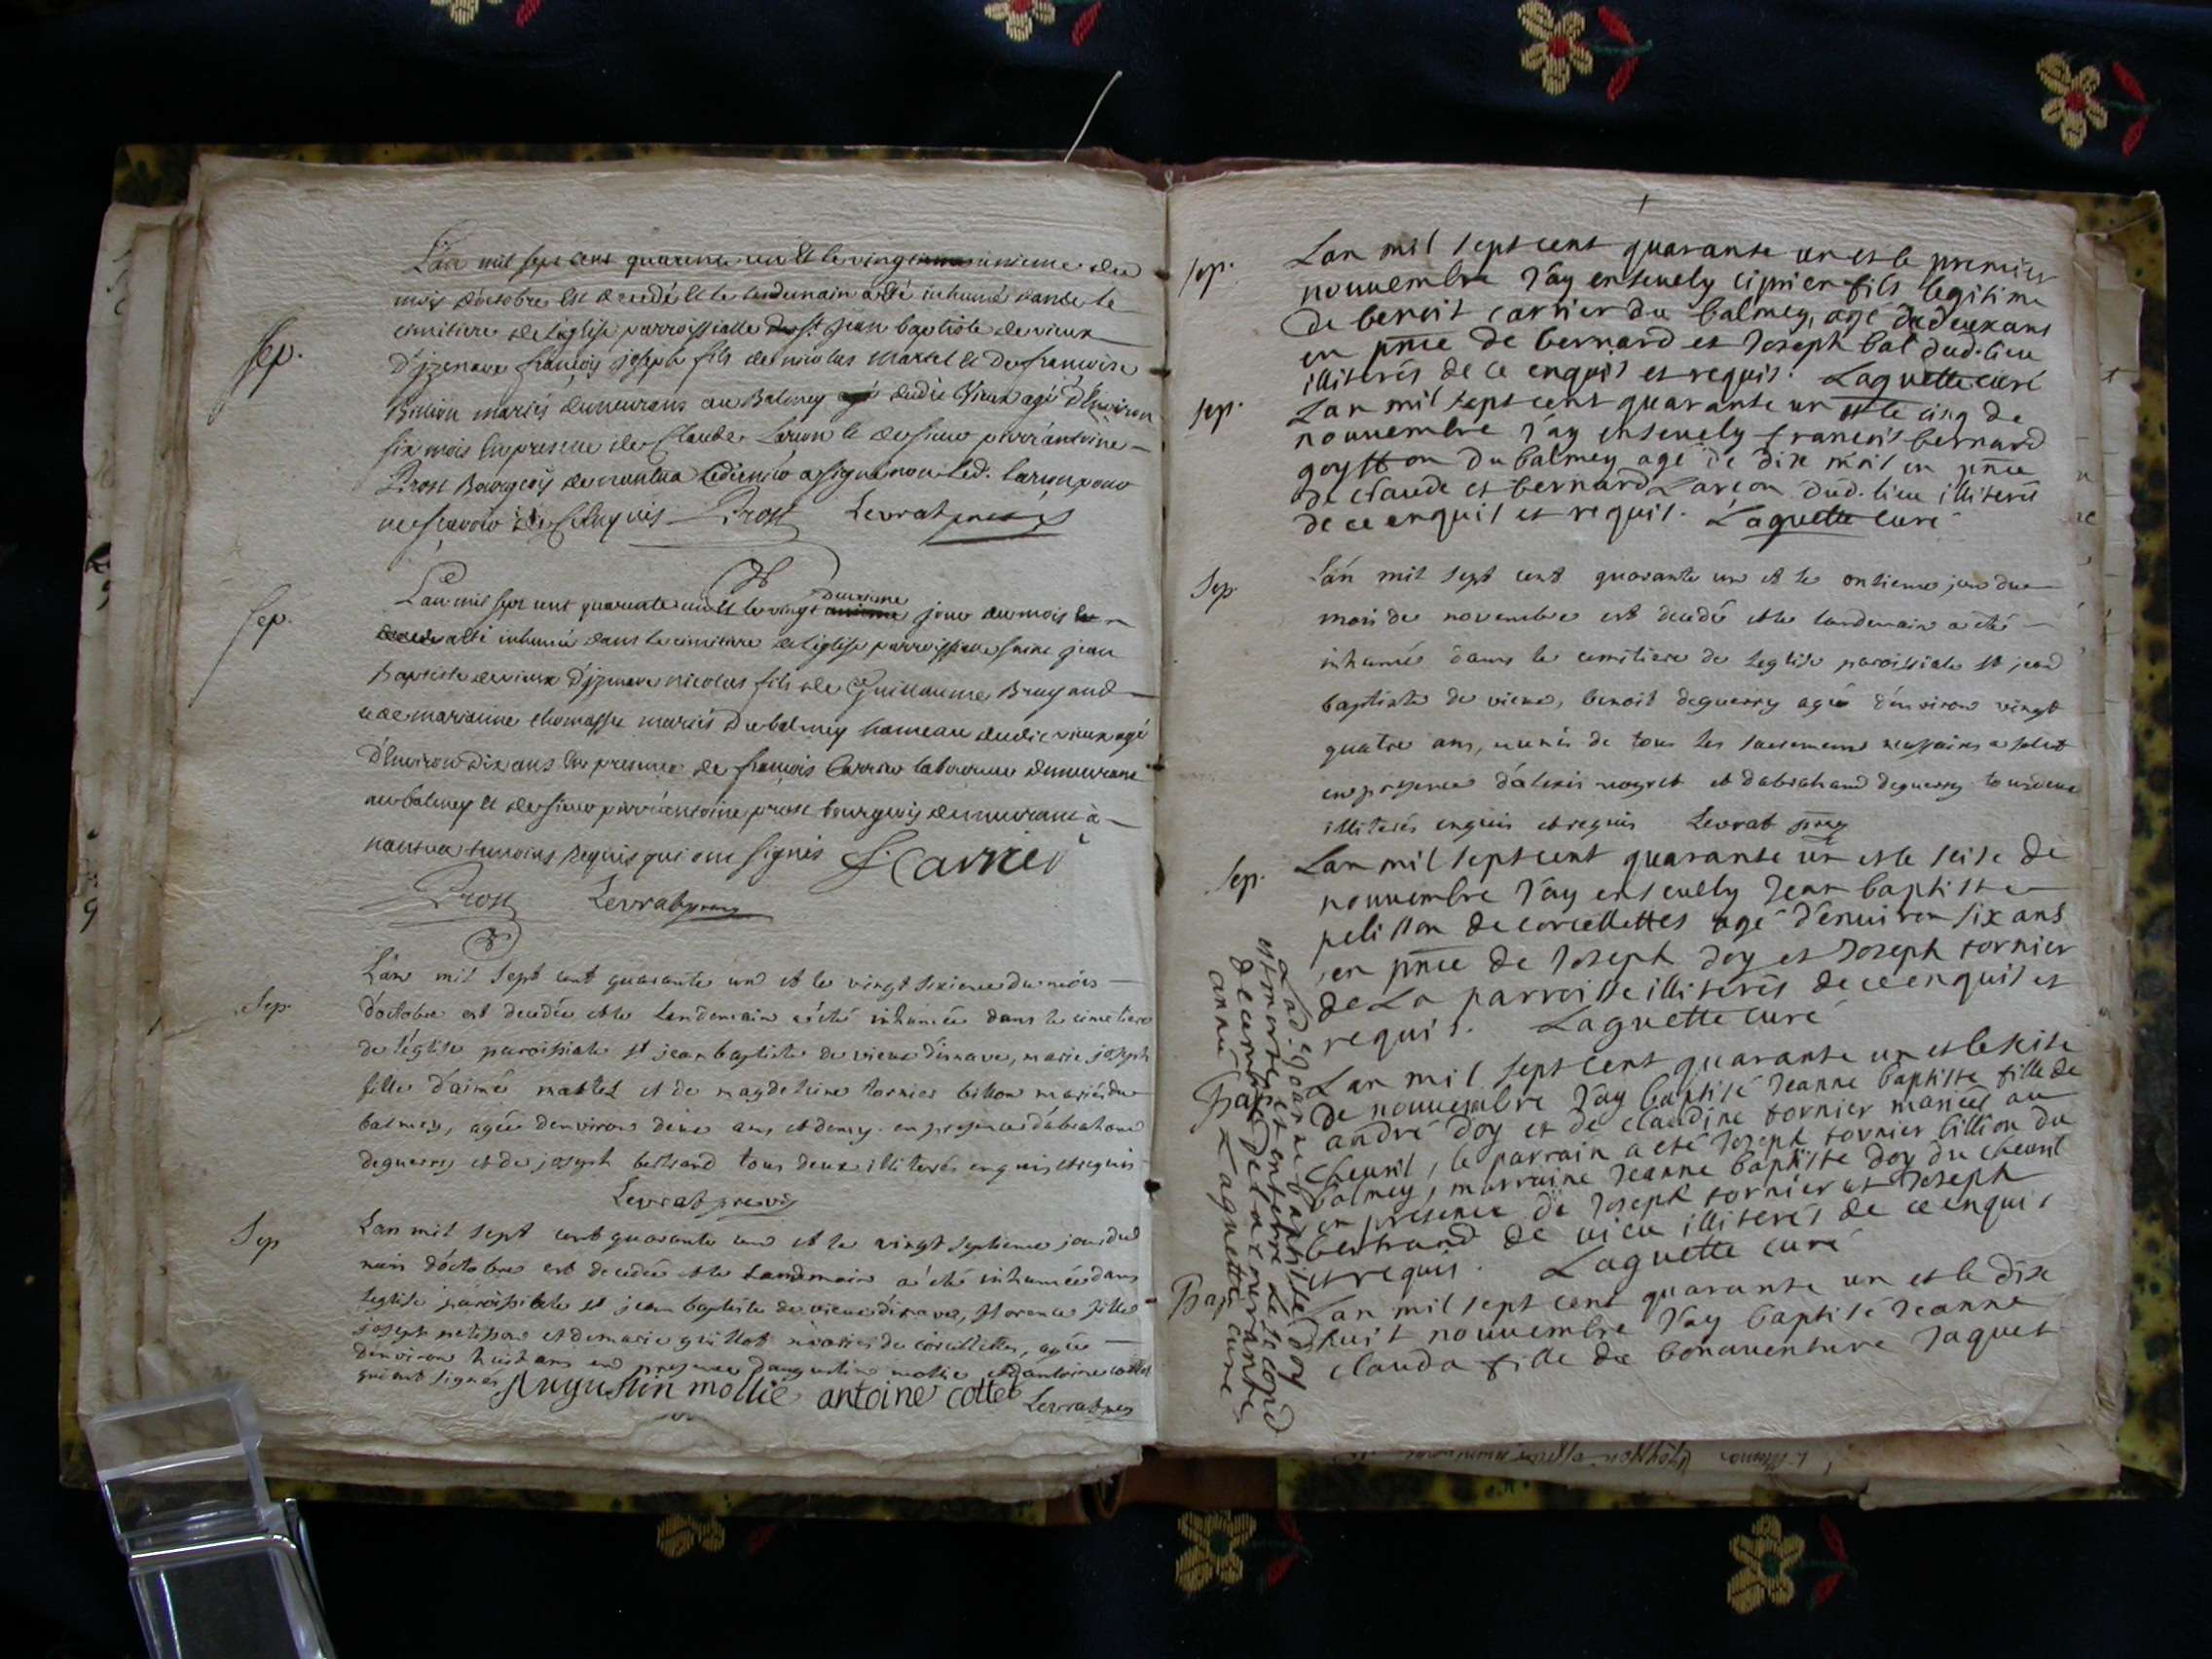 Sep.
L'an mil sept cent quarante un Et le vingt unieme du
mois d'octobre Est decedé Et le lendemain a Eté inhumé dans le
cimitiere de l'eglise parroissialle de st. jean baptiste de vieux
D'izenave françois joseph fils de nicolas Martel & De francoise
Billion mariés demeurans au Balmey dudit Vieux agé d'Environ
six mois En presence de Claude Larson & de sieur pierre antoine
Prost Bourgeois de nantua Ledernier a signé non led. larson pour
ne sçavoir de ce Enquis Prost Levrat
Sep.
L'an mil sept cent quarante un Et le vingt deuxieme jour du mois
a été inhumé dans le cimitiere de l'eglise parroissialle saint jean
Baptiste de vieux d'izenave nicolas fils de Guillaume Brugand
& de marianne thomasset mariés Du balmey hameau dudit vieux agé
d'Environ Dix ans En presence de françois Carrier laboureur demeurant
au balmey Et de sieur pierre antoine prost bourgeois demeurant à
nantua temoins Requis qui ont signés f. Carrier
Prost Levrat
Sep.
L'an mil sept cent quarante un et le vingt sixieme du mois
d'octobre est decedée et le lendemain a été inhumée dans le cimetiere
de l'église paroissiale st jean baptiste de vieux d'isnave, marie joseph
fille d'aimé martel et de magdeleine tornier billion mariés du
balmey, agée denviron deux ans et demy en presence d'abraham
deguerry et de joseph bertrand tous deux illiterés enquis et requis
Levrat
Sep
L'an mil sept cent quarante un et le vingt septieme jour du
mois d'octobre est decedée et le landemain a été inhumée dans
l'eglise paroissiale st jean baptiste de vieux d'isnave, florence fille
joseph pelisson et de marie grillot mariés de corcellettes, agée
denviron huit ans en presence d'augustin mollie et d'antoine cottet
qui ont signés Augustin mollie antoine cottet Levrat
Sep.
Lan mil sept cent quarante un et le premier
nouvembre J'ay ensevely ciprien fils legitime
de benoit carrier du balmey, agé de deux ans
en pnce de bernard et Joseph bal dud. lieu
illiterés de ce enquis et requis. Laguette curé
Sep.
Lan mil sept cent quarante un et le cinq de
nouvembre J'ay ensevely francois bernard
goyffon Du balmey agé de dix mois en pnce
de claude et bernard Larçon dud. lieu illiterés
de ce enquis et requis. Laguette curé
Sep
L'an mil sept cent quarante un et le onsieme jour du
mois de novembre est decedé et le landemain a été
inhumé dans le cemitiere de leglise paroissiale st jean
baptiste de vieux, benoit deguerry agé d'environ vingt
quatre ans, munis de tous les sacremens
en presence d'alexis et dabraham deguerry tous deux
illiterés enquis et requis Levrat
Sep.
Lan mil sept cent quarante un et le seise de
nouvembre J'ay ensevelly Jean baptiste
pelisson de corcellettes agé d'environ six ans
en pnce de Joseph Doy et Joseph tornier
de La parroisse illiterés de ce enquis et
requis. Laguette curé
Bap
Lan mil sept cent quarante un et le seise
de nouvembre J'ay baptisé Jeanne baptiste fille de
andré Doy et de claudine tornier mariés au
Cheuril, le parrain a eté Joseph tornier billion du
balmey, marraine Jeanne baptiste doy du cheuril
en presence de Joseph tornier et Joseph
bertrand de vieu illiterés de ce enquis
et requis. Laguette curé
Lad. Jeanne baptiste doy
est morte et enterré Le second
decembre de la courante
année Laguette curé
Bap
Lan mil sept cent quarante un et le dix
huit nouvembre J'ay baptisé Jeanne
clauda fille de bonaventure Jaquet